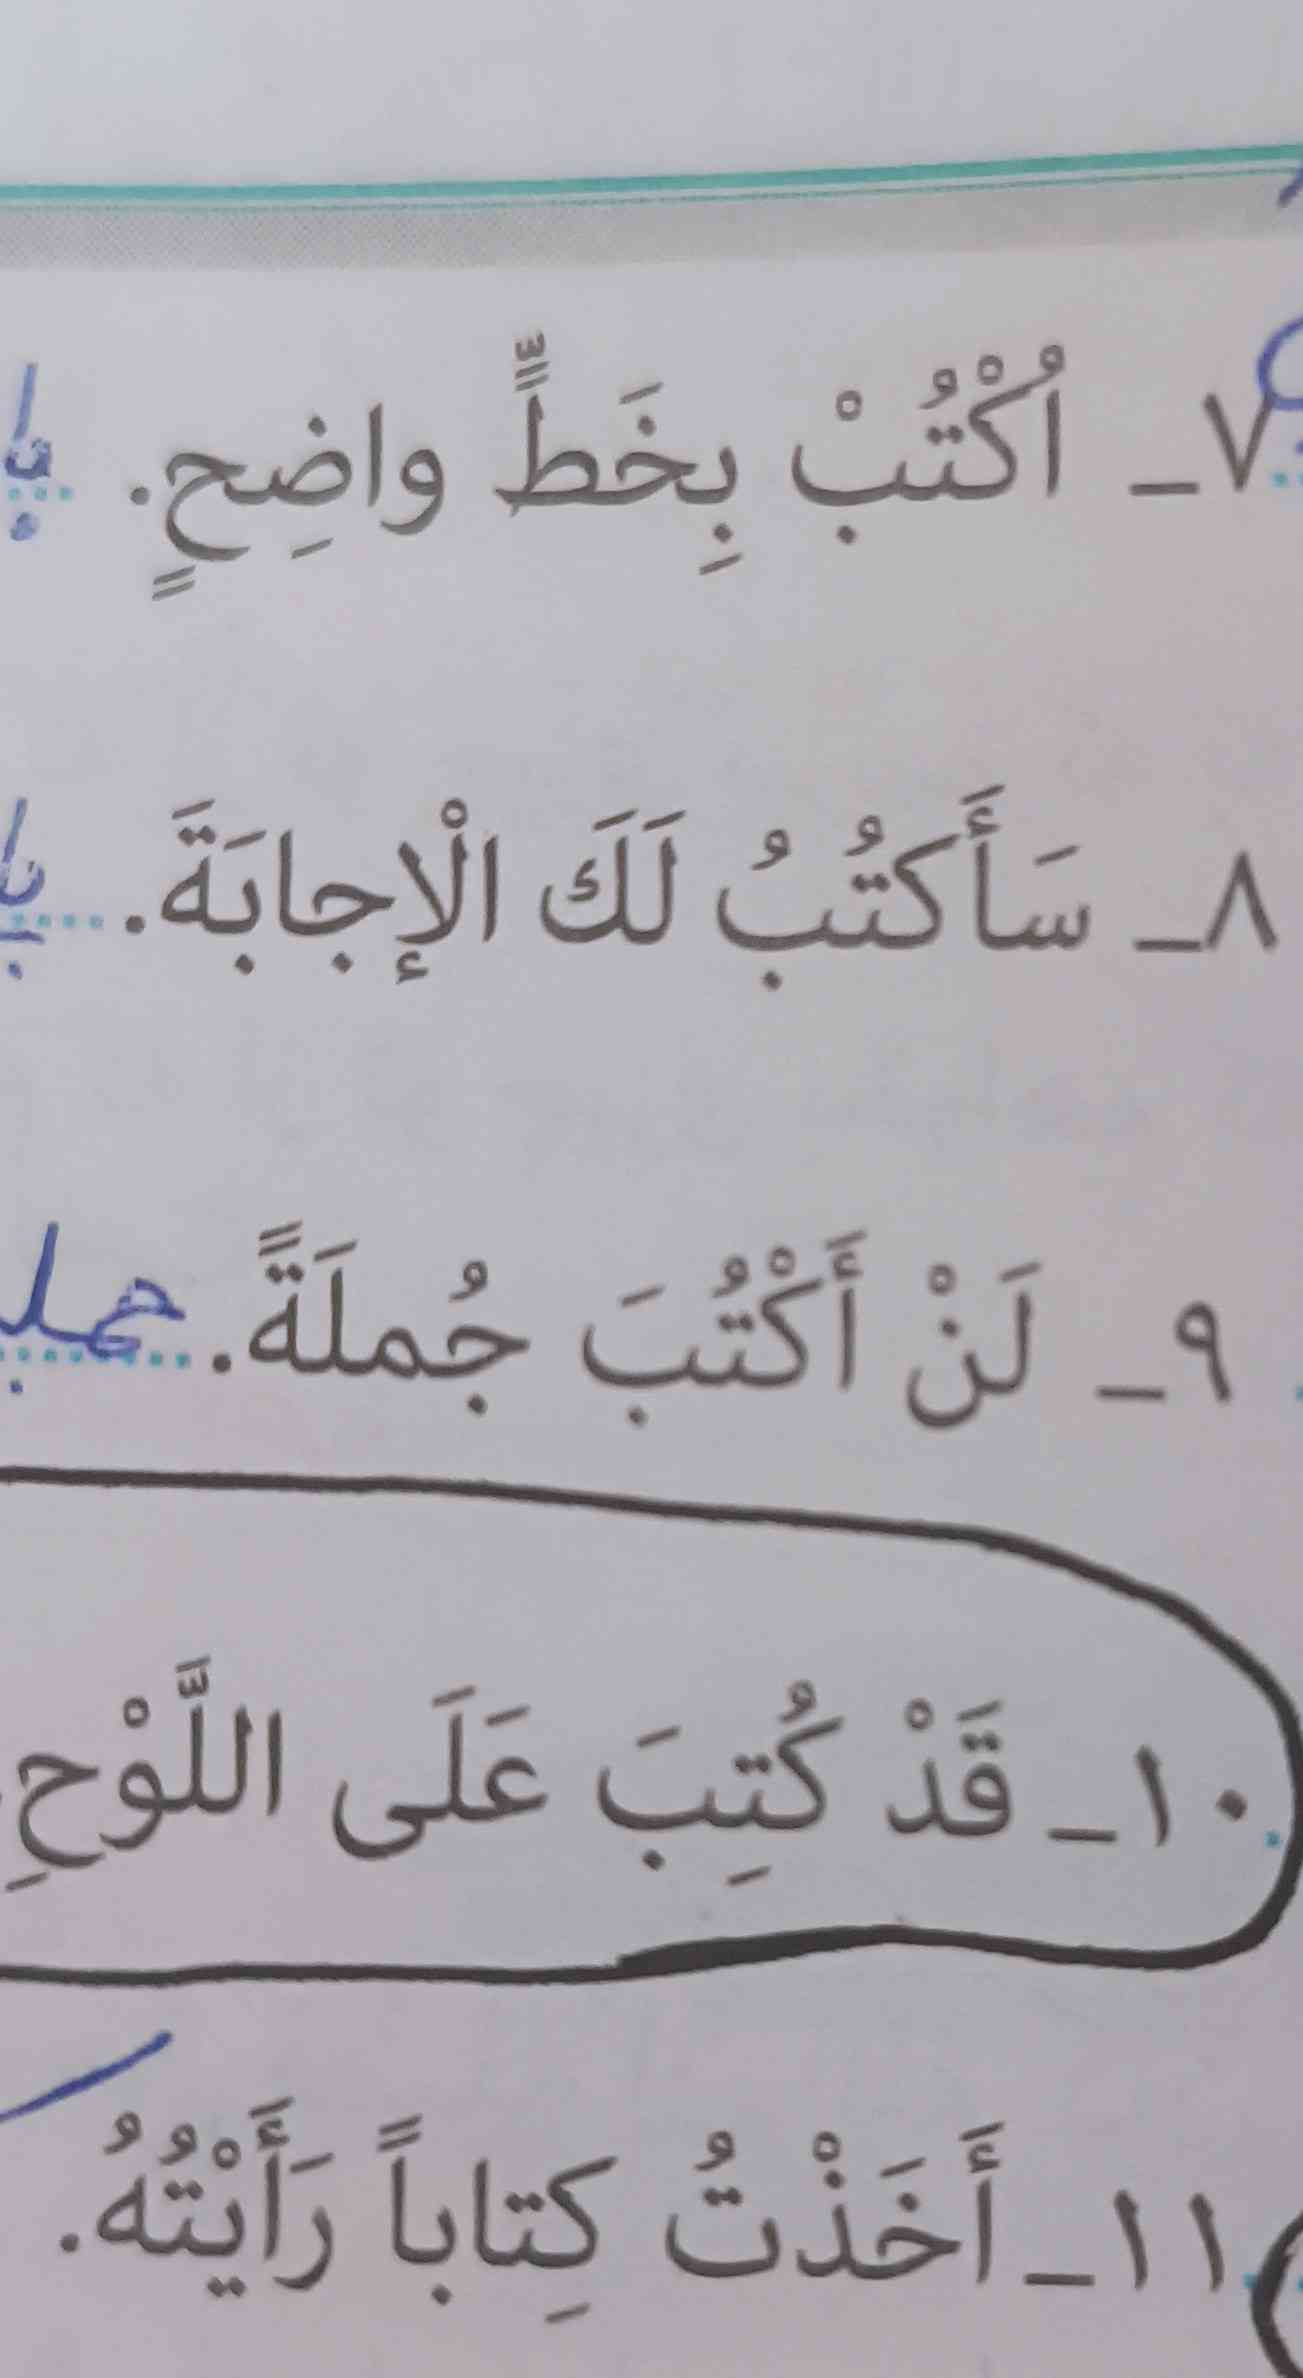 ٧_ اُكْتُبْ بِخَطًّ واضِحٍ.
٨_ سَأَكتُبُ لَكَ الْإجابَةَ.
٩_ لَنْ أَكْتُبَ جُملَةً.
١٠_ قَدْ كُتِبَ عَلَى اللَّوْحِ
١١_ أَخَذْتُ كِتاباً رَأَيْتُهُ.